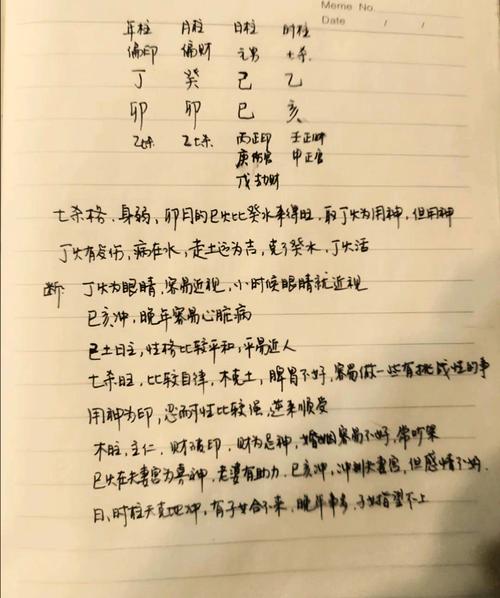 Meme No.
Date / /
年柱 月柱 日柱 时柱
偏印 偏财 元男 七杀
丁 癸 己 乙
卯 卯 巳 亥
乙七杀 乙七杀 丙正印 壬正财
庚伤官 甲正官
戊劫财
七杀格、身弱,卯月的巳火比癸水来得旺,取丁火为用神,但用神
丁火有受伤,病在水,走土运为吉,克了癸水,丁火活
断 丁火为眼睛,容易近视,小时候眼睛就近视
巳亥冲,晚年容易心脏病
己土日主,性格比较平和,平易近人
七杀旺,比较自律,木克土,脾胃不好,容易做一些有挑战性的事
用神为印,忍耐性比较强,逆来顺受
木旺,主仁,财破印,财为忌神,婚姻容易不好,常吵架
巳火在夫妻宫为喜神,老婆有助力,巳亥冲,冲到夫妻宫,但感情不好
日、时柱天克地冲,有子女合不来,晚年,子女指望不上